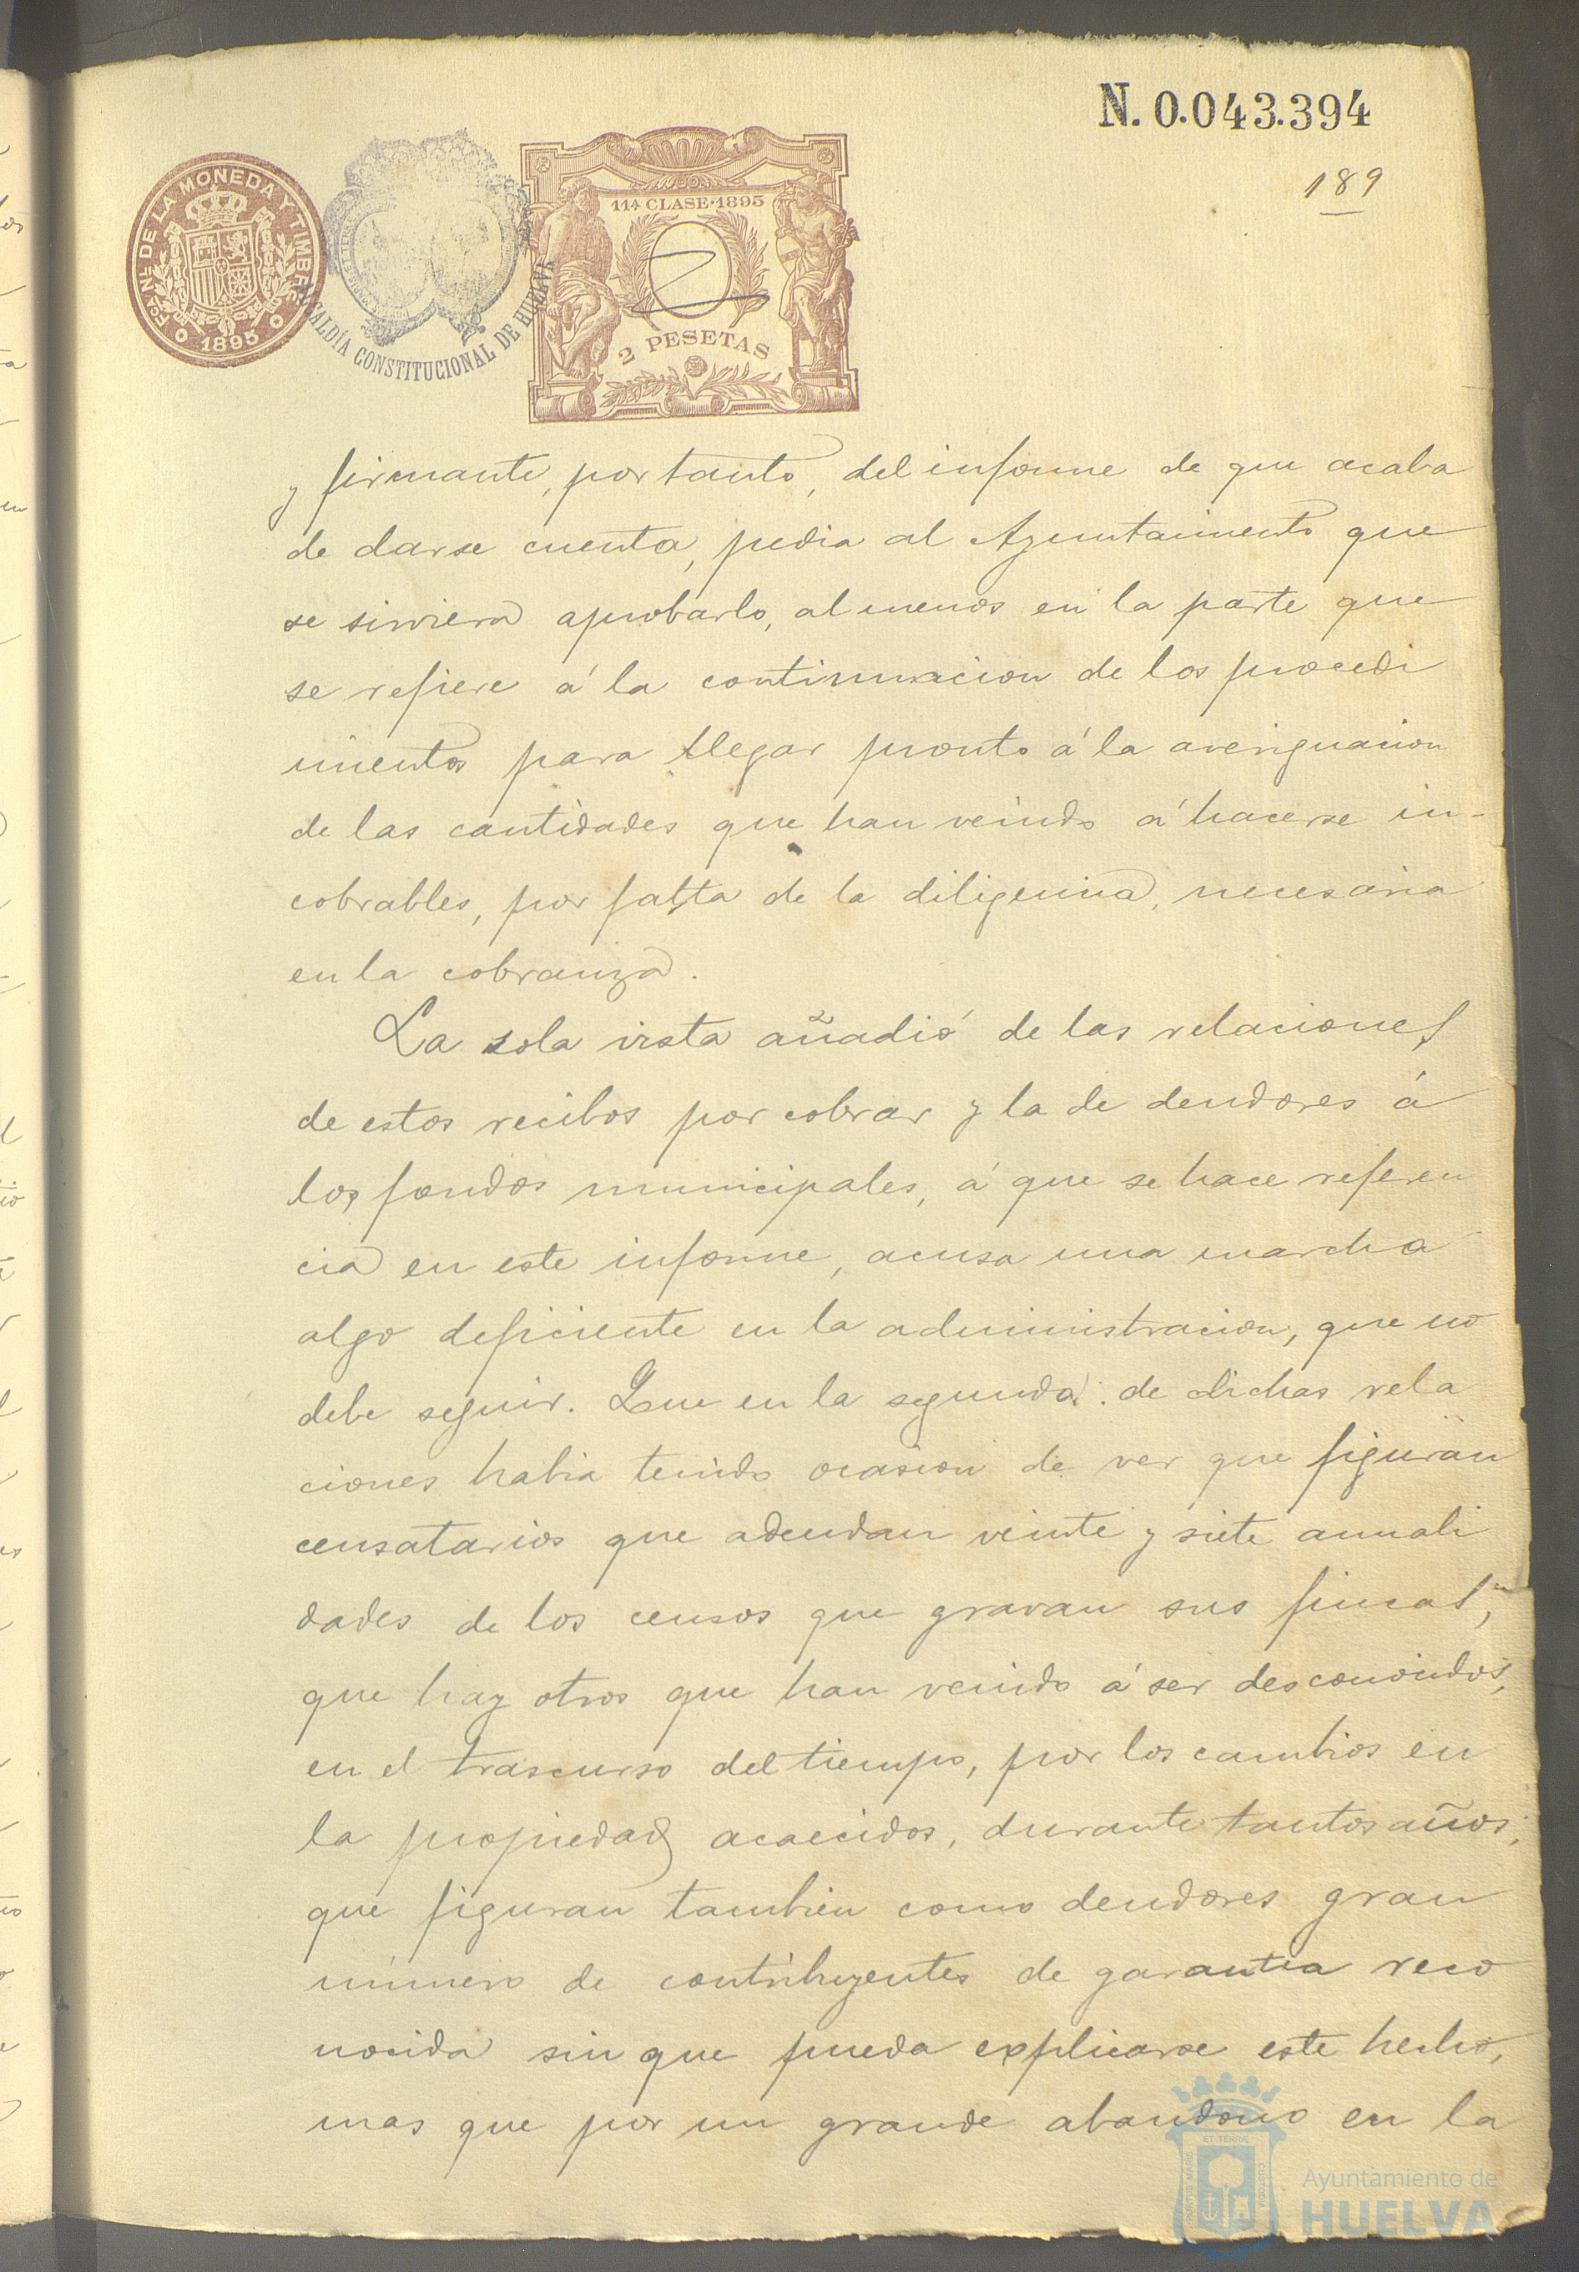 N. 0.043.394
189
FCA. NAL. DE LA MONEDA Y TIMBRE
1895
ALCALDÍA CONSTITUCIONAL DE HUELVA
11ª CLASE·1895
2 PESETAS
y firmante, por tanto, del informe de que acaba
de darse cuenta, pedia al Ayuntamiento que
se sirviera aprobarlo, al menos en la parte que
se refiere á la continuacion de los procedi
mientos para llegar pronto á la averiguacion
de las cantidades que han venido á hacerse in-
cobrables, por falta de la diligencia, necesaria
en la cobranza.
La sola vista añadió de las relaciones
de estos recibos por cobrar y la de deudores á
los fondos municipales, á que se hace referen
cia en este informe, acusa una marcha
algo deficiente en la administracion, que no
debe seguir. Que en la segunda de dichas rela
ciones habia tenido ocasion de ver que figuran
censatarios que adeudan veinte y siete anuali
dades de los censos que gravan sus fincas,
que hay otros que han venido á ser desconocidos,
en el trascurso del tiempo, por los cambios en
la propiedad acaecidos, durante tantos años;
que figuran tambien como deudores gran
número de contribuyentes de garantia reco
nocida sin que pueda explicarse este hecho,
mas que por un grande abandono en la
Ayuntamiento de
HUELVA